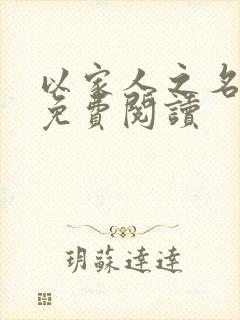 以家人之名
免費閱讀
玥蘇達達